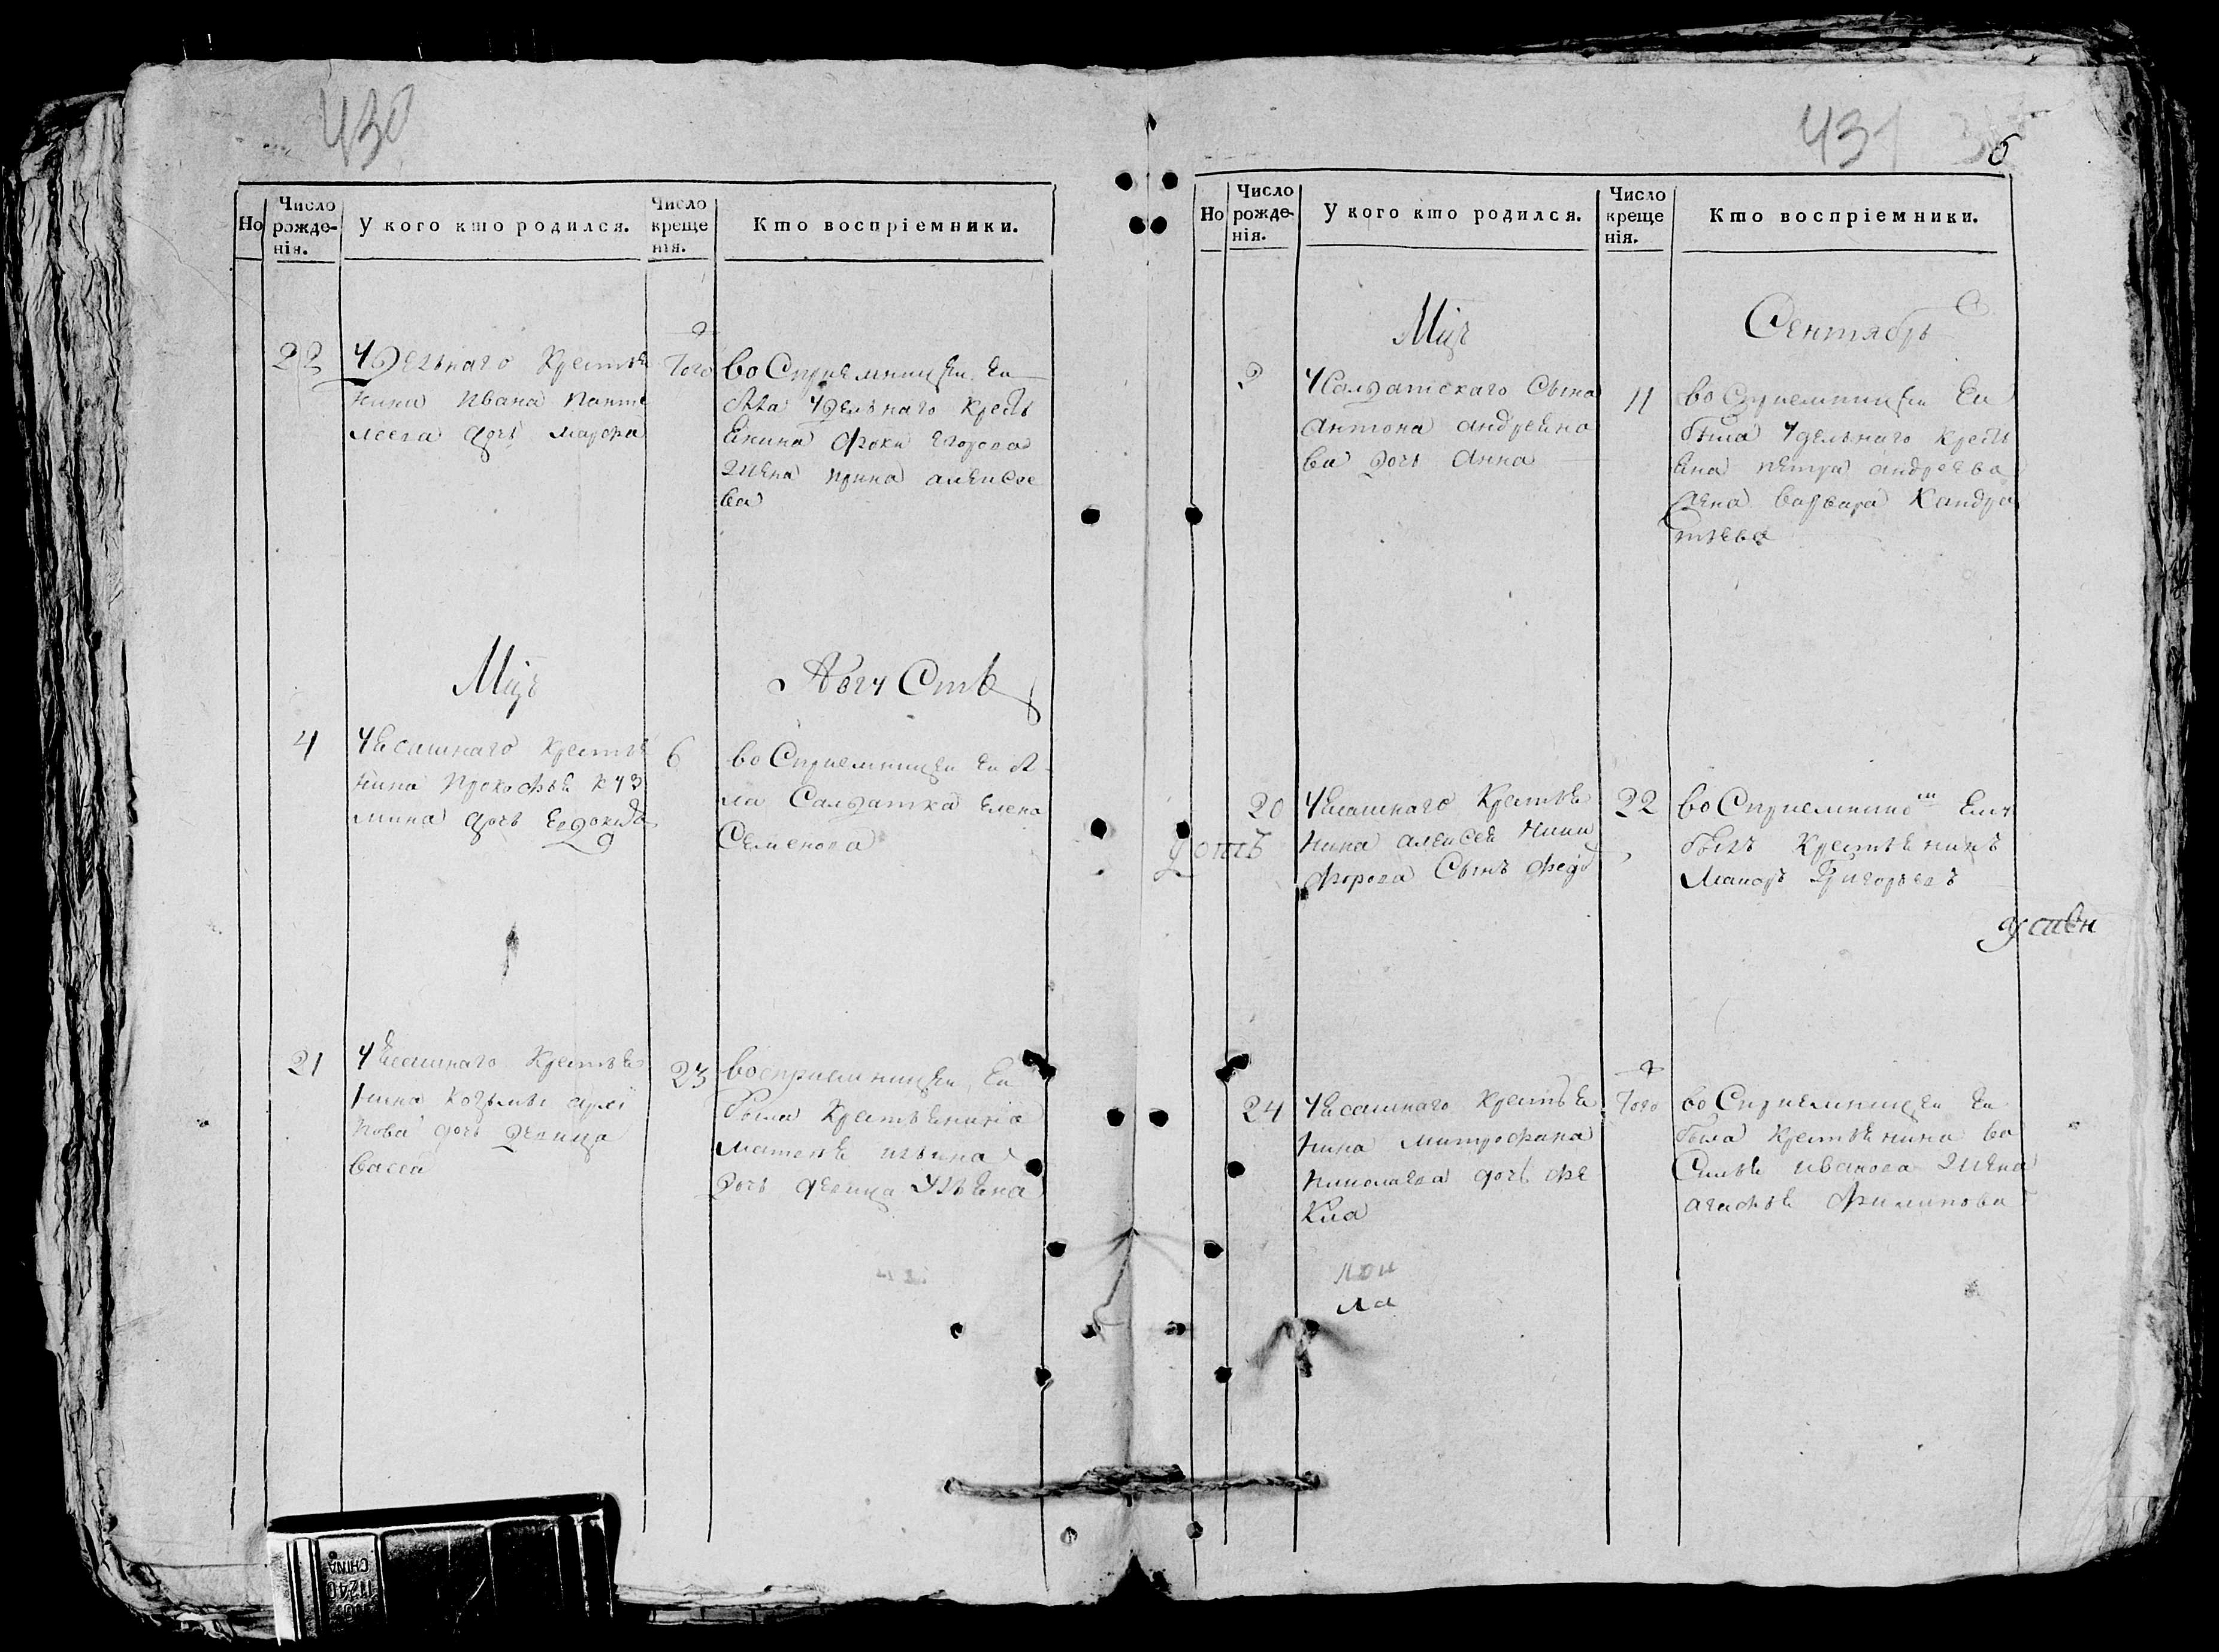 430
Но
Число рожде-нія.
У кого кто родился.
Число креще нія.
Кто воспріемники.
22
Удельнаго Крестья
нина Ивана Панте
леева дочь марфа
Того
воСприемницею Ея
была Удельнаго крестъ
янина Фоки Егорова
жена ирина алексее
ва
Мцъ
АвгуСтъ
4
Уясашнаго крестья
нина Прокофья куз
мина дочь Евдокия
6
воСприемницею Ея бы
ла Салдатка Елена
Семенова
21
Уясашнаго Крестья
нина Козьмы
дочь девица
васса
23
восприемницею Ея
была Крестьянина
матвея ильина
дочь девица Ульяна
431
6
Но
Число рожде-нія.
У кого кто родился.
Число креще нія.
Кто воспріемники.
Мцъ
Сентябрь
9
УСалдатскаго Сына
Антона андреяно
ва дочь Анна
11
воСприемницею Ея
была Удельнаго крестъ
яна петра андреева
жена варвара Кандра
тьева
20
Уясашнаго Крестья
нина алексея Ники
форова Сынъ Федо
22
воСприемникомъ Ему
былъ Крестьянинъ
Григорьевъ
24
Уясашнаго крестья
нина митрофана
николаева дочь Фе
кла
Того
воСприемницею Ея
была крестьянина ва
Силья иванова жена
агафья Филипова
ла